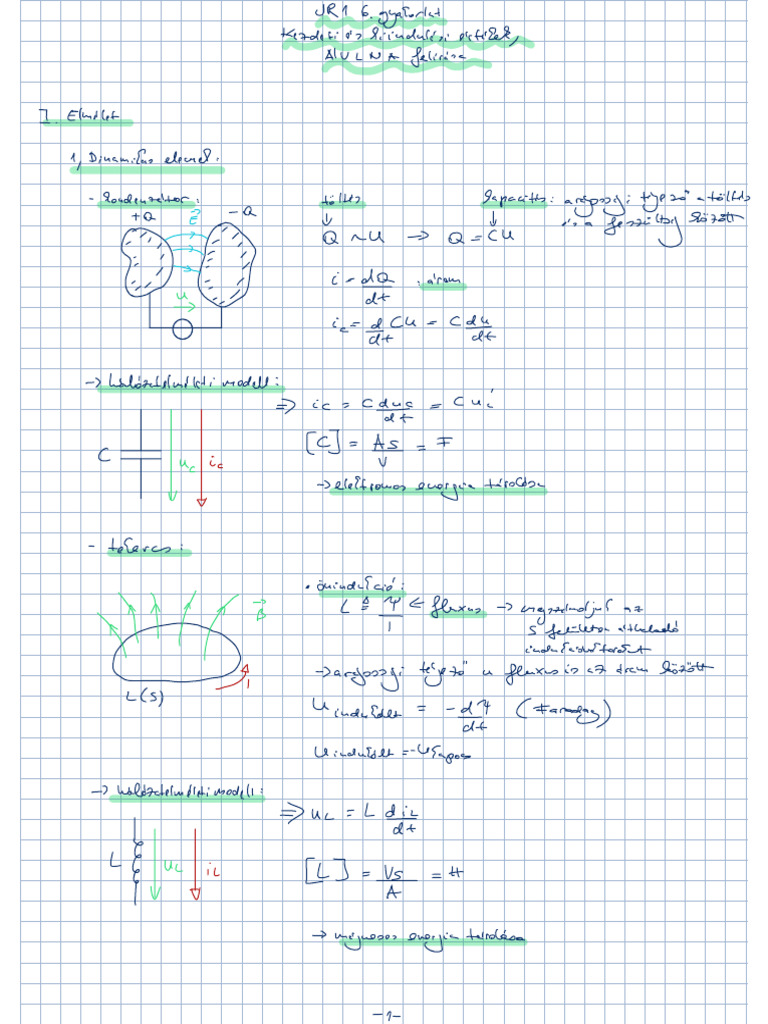 JR1 6. gyakorlat
Kezdeti és kiindulási értékek,
ÁVLNA felírása
I. Elmélet
1, Dinamikus elemek:
- kondenzátor:
+Q
-Q
E
u
töltés
kapacitás: arányossági tényező a töltés
és a feszültség között
Q ~ U → Q = CU
i = dQ/dt : áram
i_c = d/dt CU = C du/dt
→ hálózatelméleti modell:
C
u_c
i_c
⇒ i_c = C du_c/dt = C u_c'
[C] = As/V = F
→ elektromos energia tárolása
- tekercs:
B
L(S)
I
• önindukció:
L ≜ Ψ/I ← fluxus → megszámoljuk az
S felületen áthaladó
indukcióvonalakat
→ arányossági tényező a fluxus és az áram között
U indukált = - dΨ/dt (Faraday)
U indukált = -U kapocs
→ hálózatelméleti modell:
L
u_L
i_L
⇒ u_L = L di_L/dt
[L] = Vs/A = H
→ mágneses energia tárolása
-1-